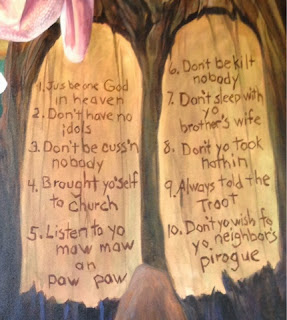 1. Jus be one God
in heaven
2. Don't have no
idols
3. Don't be cuss'n
nobody
4. Brought yo'self
to church
5. Listen to yo
maw maw
an
paw paw
6. Don't be kilt
nobody
7. Don't sleep with
yo
brother's wife
8. Don't yo took
nothin
9. Always told the
Troot
10. Don't yo wish fo
yo neighbor's
pirogue